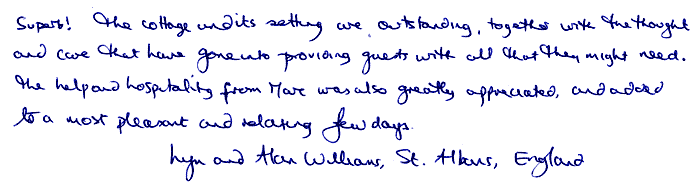 Superb! The cottage and its setting are outstanding, together with the thought
and care that have gone into providing guests with all that they might need.
The help and hospitality from Marc was also greatly appreciated, and added
to a most pleasant and relaxing few days.
Lyn and Alan Williams, St. Albans, England